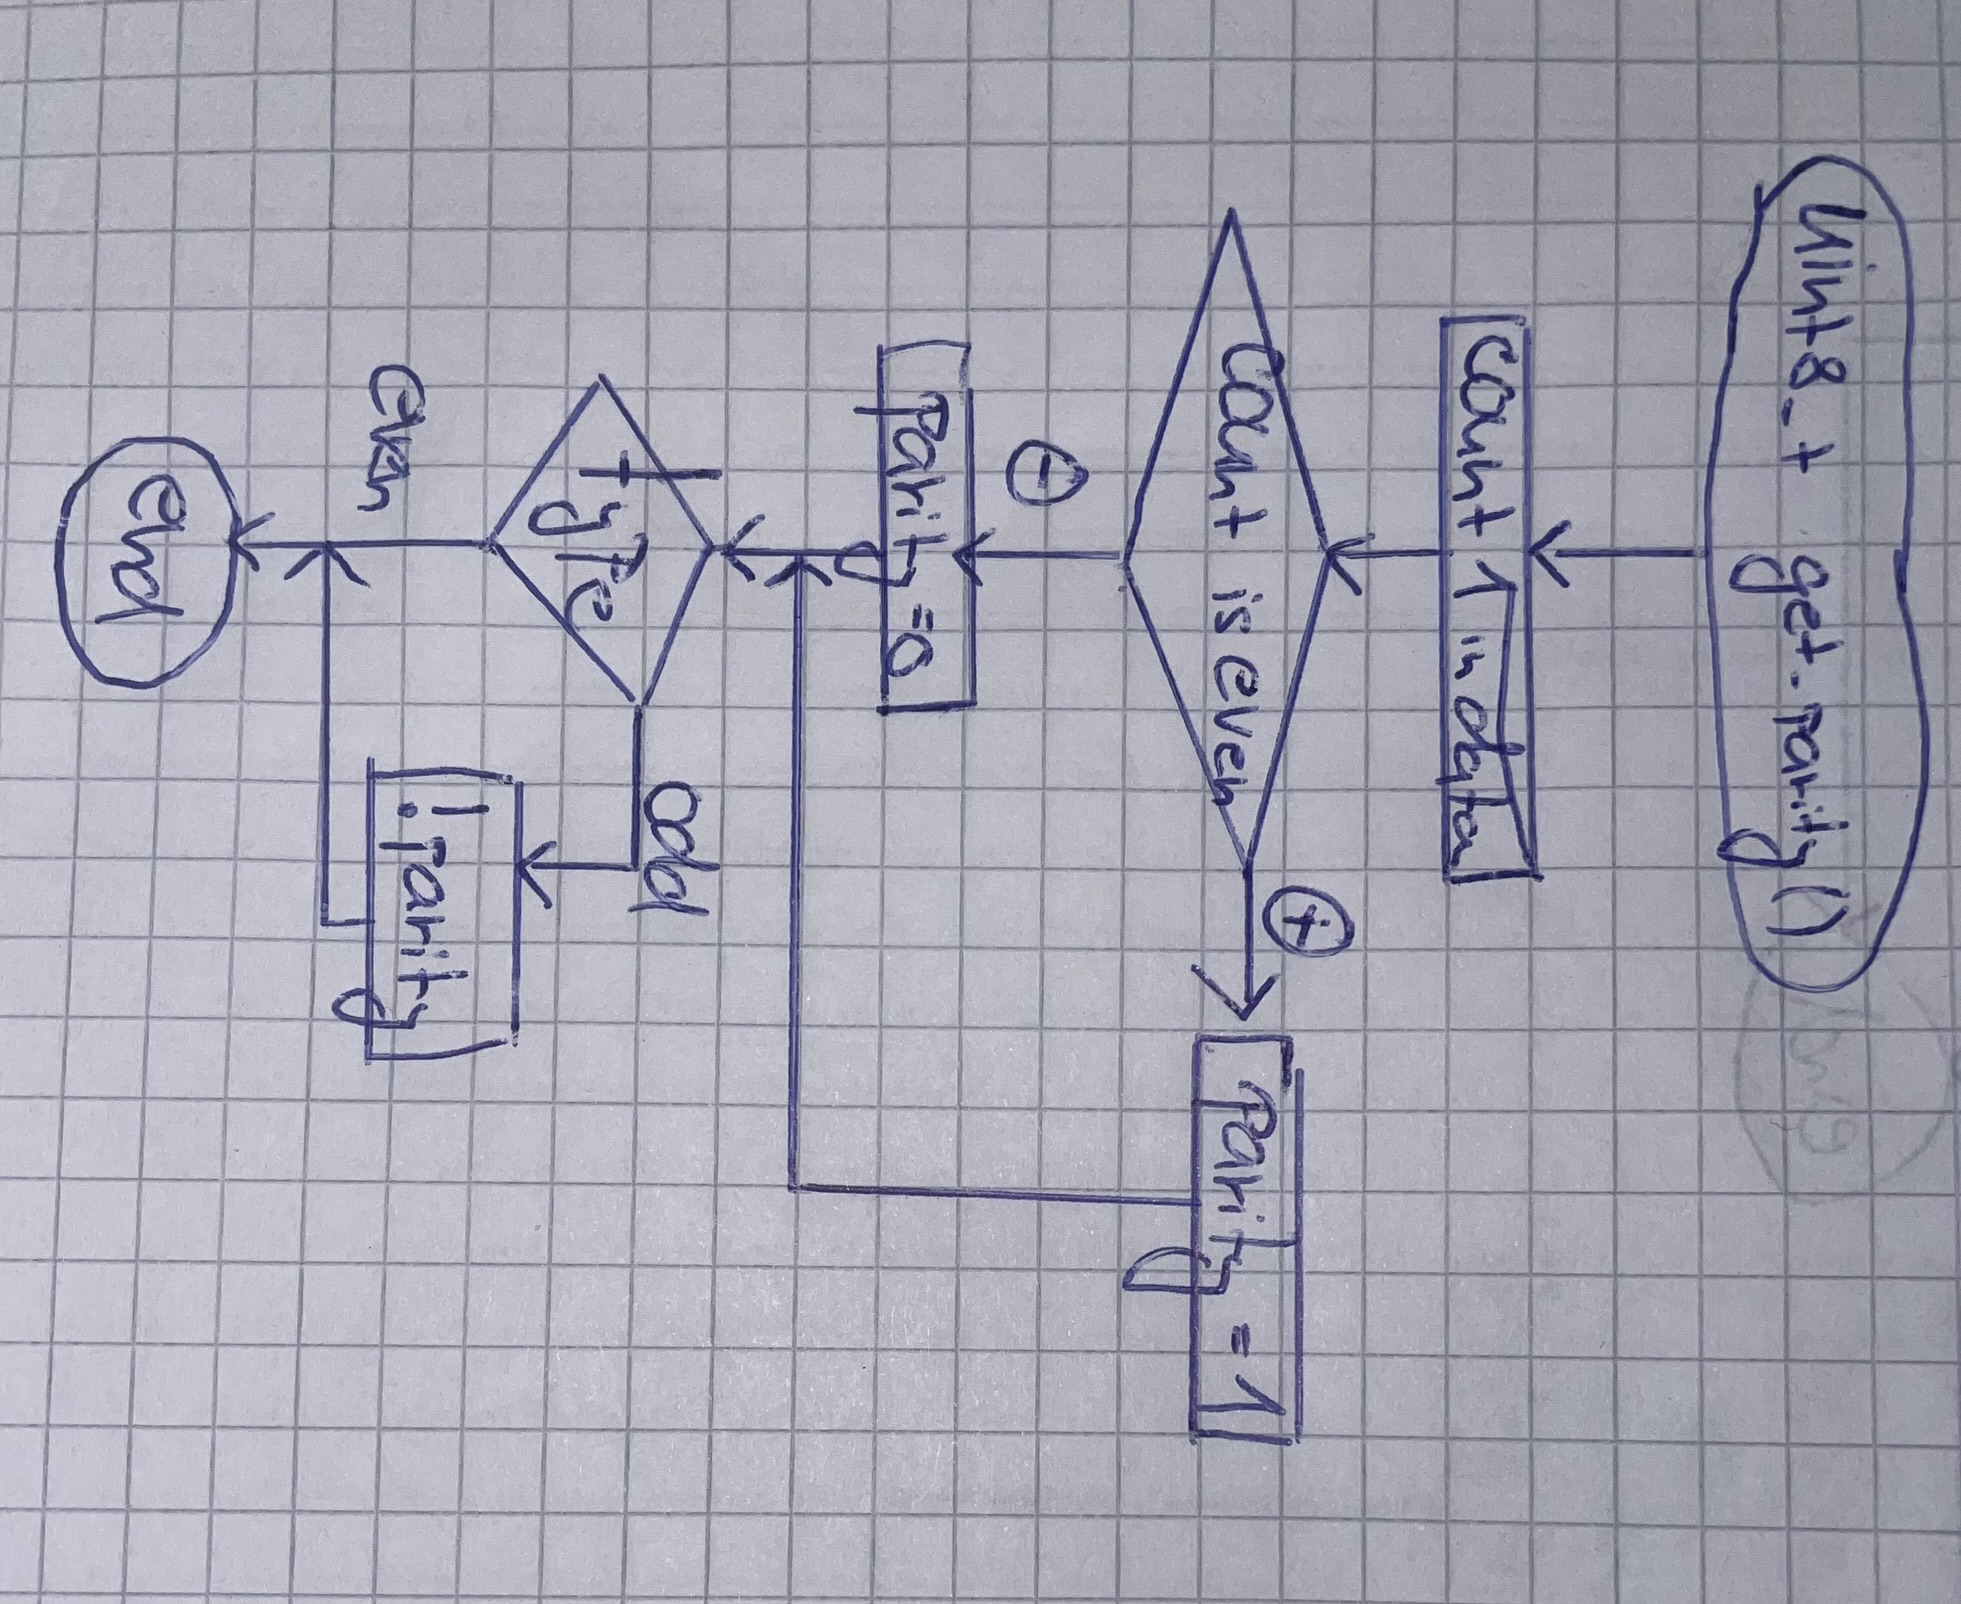 uint8_t get_parity()
count 1 in data
count is even
+
-
parity = 1
parity = 0
type
odd
even
!parity
end